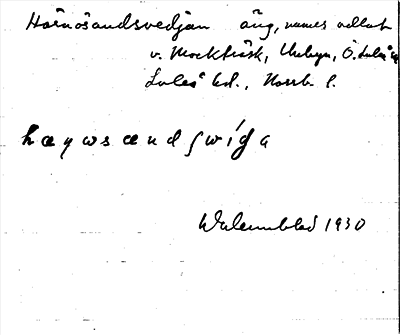 Härnösandsvedjan äng, numera odlat
v. Mockträsk, Unbyn, Ö. Luleå
Luleå hd., Norrb. l.
hæɳωsændʃwíga
Wulemblad 1930